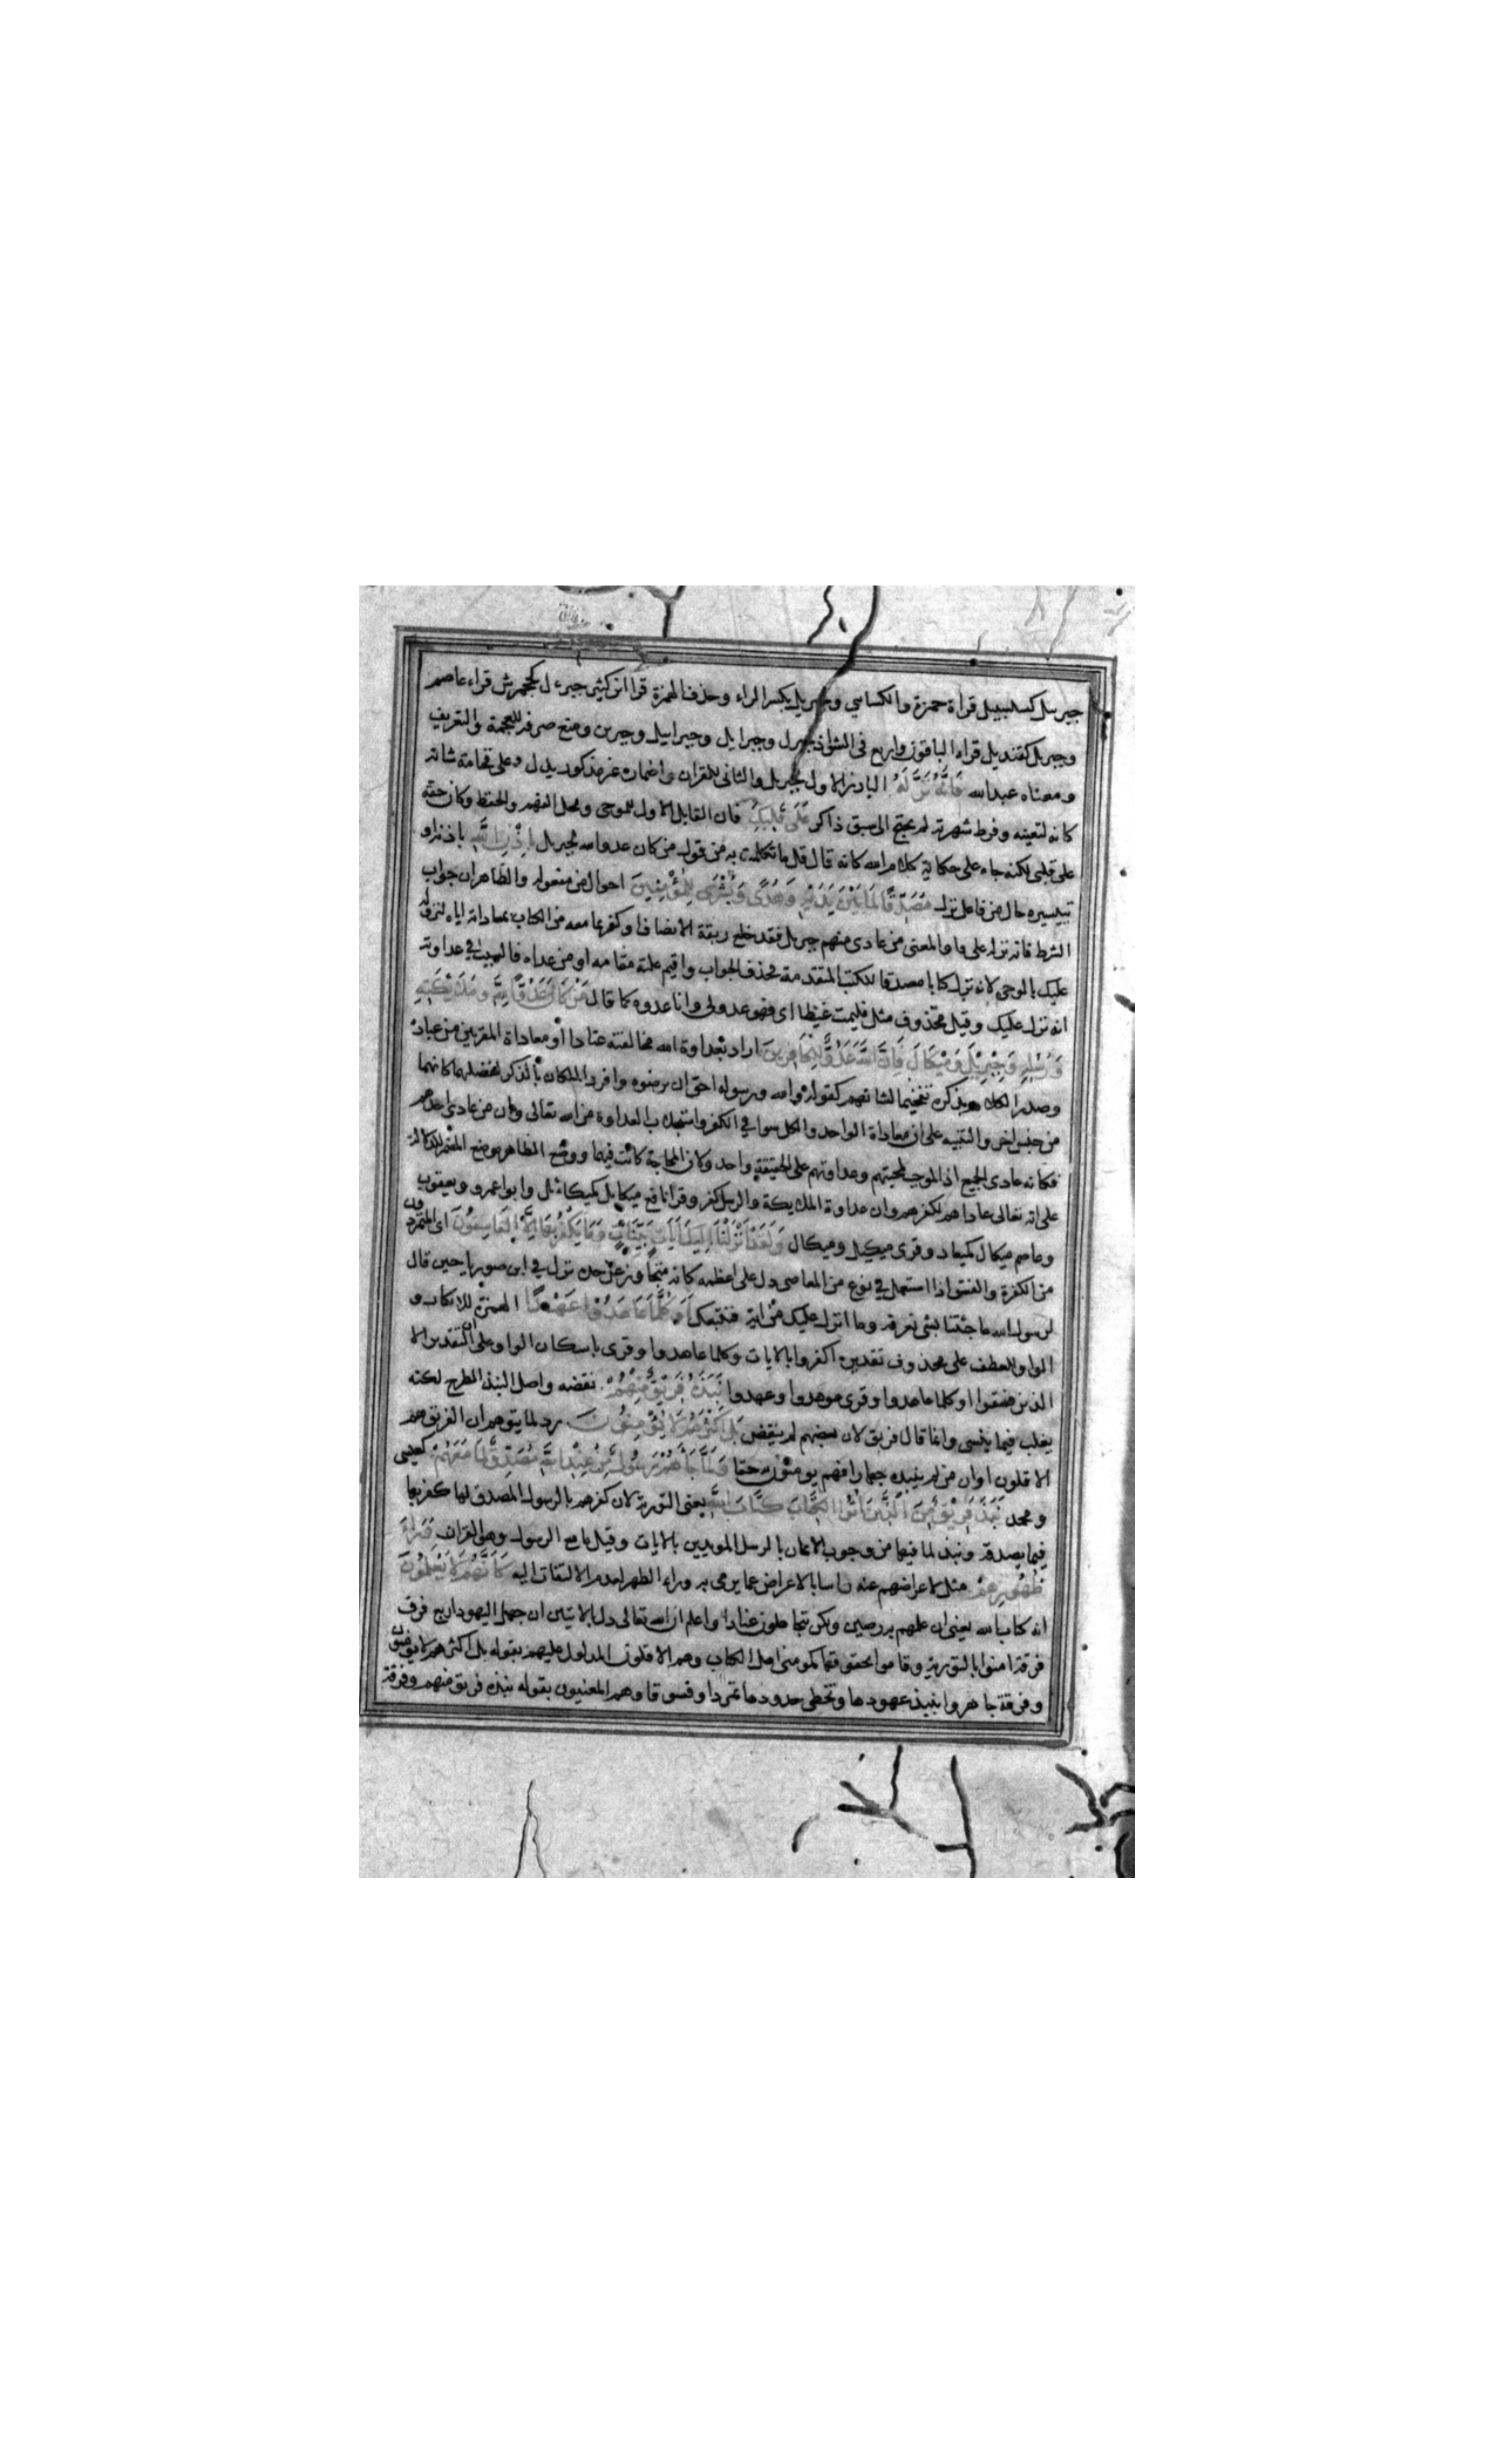 جبرئيل كسلسبيل قراة حمزة والكسايي وجبريل بكسر الراء وحذف الهمزة قرا ابن كثير جبرءل كجحمرش قراءعاصم
وجبريل كقنديل قراه الباقون واربع في الشواذ جبرل وجبرايل وجبراييل وجبرين ومنع صرفه للعجمة والتعريف
ومعناه عبدالله فَاِنَّهُ نَزَّلَهُ البارز الاول لجبريل والثاني للقران واضماره غير مذكور يدل وعلى فخامة شانه
كانه لتعينه وفرط شهرته لم يحتج الى سبق ذاكر عَلَى قَلْبِكَ فان القابل الاول للوحي ومحل الفهم والحفظ وكان حقه
على قلبي لكنه جاء على حكاية كلام الله كانه قال قل ما تكلمت به من قولـ من كان عدوا لجبريل بِاِذْنِ اللَّهِ باذنه او
تيسيره حال من فاعل نزلـ مُصَدِّقًا لِمَا بَيْنَ يَدَيْهِ وَهُدًى وَبُشْرَى لِلْمُؤْمِنِينَ احوال من مفعوله والظاهر ان جواب
الشرط فانه نزله على ما والمعنى من عادى منهم جبريل فقد خلع ربقة الانصاف او كفر بما معه من الكتاب بمعاداته اياه لنزوله
عليك بالوحي لانه نزل كتابا مصدقا للكتب المتقدمة فحذف الجواب واقيم علته مقامه او من عداه فالسبب في عداوته
انه نزلـ عليك وقيل محذوف مثل فليمت غيظا اى فهو عدو لي وانا عدوه كما قال مَنْ كَانَ عَدُوًّا لِلَّهِ وَمَلَائِكَتِهِ
وَرُسُلِهِ وَجِبْرِيلَ وَمِيكَالَ فَاِنَّ اللَّهَ عَدُوٌّ لِلْكَافِرِينَ اراد بعداوة الله مخالفته عنادا او معاداة المقربين من عباده
وصدر الكلام بذكره تفخيما لشانهم كقوله والله ورسوله احق ان يرضوه وافرد الملكان بالذكر لفضلهما كانهما
من جنس اخر والتنبيه على ان معاداة الواحد والكل سوا في الكفر واستجلاب العداوة من الله تعالى وان من عادى احدهم
فكانه عادى الجميع اذ الموجب لمحبتهم وعداوتهم على الحقيقة واحد وكان المحاجة كانت فيهما ووضع الظاهر موضع المضمر للدلالة
على انه تعالى عاداهم لكفرهم وان عداوة الملايكة والرسل كفر وقرا نافع ميكايل كميكاعل وابوا عمرو ويعقوب
وعاصم ميكال كميعاد وقرى ميكيل وميكال وَلَقَدْ اَنْزَلْنَا اِلَيْكَ اٰيَاتٍ بَيِّنَاتٍ وَمَا يَكْفُرُ بِهَا اِلَّا الْفَاسِقُونَ اى المتمردون
من الكفرة والفسق اذا استعمل في نوع من المعاصى دل على اعظمه كانه متجاوز عن حده نزل في ابن صوريا حين قال
لرسول الله ما جئتنا بشي نعرفه وما انزل عليك من اية فنتبعك اَوَ كُلَّمَا عَاهَدُوا عَهْدًا الهمزة للانكار و
الواو للعطف على محذوف تقديره اكفروا بالايات وكلما عاهدوا وقرى باسكان الواو على ان التقدير الا
الذين فسقوا او كلما عاهدوا وقرى عوهدوا وعهدوا نَبَذَهُ فَرِيقٌ مِنْهُمْ نقضه واصل النبذ الطرح لكنه
يغلب فيما ينسى وانما قال فريق لان بعضهم لم ينقض بَلْ اَكْثَرُهُمْ لَا يُؤْمِنُونَ رد لما يتوهم ان الفريق هم
الاقلون او ان من لم ينبذ جهارا فهم يومنون به حقا وَلَمَّا جَاءَهُمْ رَسُولٌ مِنْ عِنْدِ اللَّهِ مُصَدِّقٌ لِمَا مَعَهُمْ كعيسى
ومحمد نَبَذَ فَرِيقٌ مِنَ الَّذِينَ اُوتُوا الْكِتَابَ كِتَابَ اللَّهِ يعنى التورية لان كفرهم بالرسول المصدق لها كفر بها
فيما يصدقه ونبذ لما فيها من وجوب الايمان بالرسل المويدين بالايات وقيل ما مع الرسولـ وهو القران وَرَاءَ
ظُهُورِهِمْ مثل لاعراضهم عنه راسا بالاعراض عما يرمى به وراء الظهر لعدم الالتفات اليه كَاَنَّهُمْ لَا يَعْلَمُونَ
انه كتاب الله يعني ان علمهم به رصين ولكن يتجاهلون عنادا واعلم ان الله تعالى دل بالايتين ان جهل اليهود اربع فرق
فرقة امنوا بالتورية وقاموا بحقوقها كمومنى اهل الكتاب وهم الاقلون المدلول عليهم بقوله بل اكثرهم لا يومنون
وفرقة جاهروا بنبذ عهودها وتخطى حدودها تمردا وفسوقا وهم المعنيون بقوله نبذه فريق منهم وفرقة